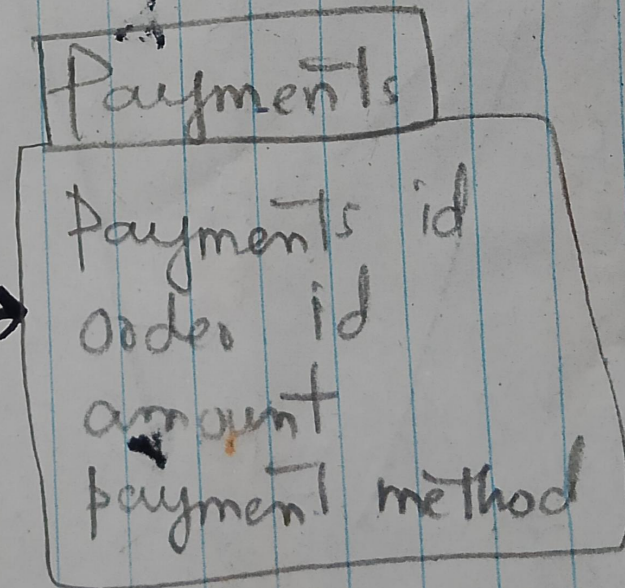 Payments
Payments id
order id
amount
payment method